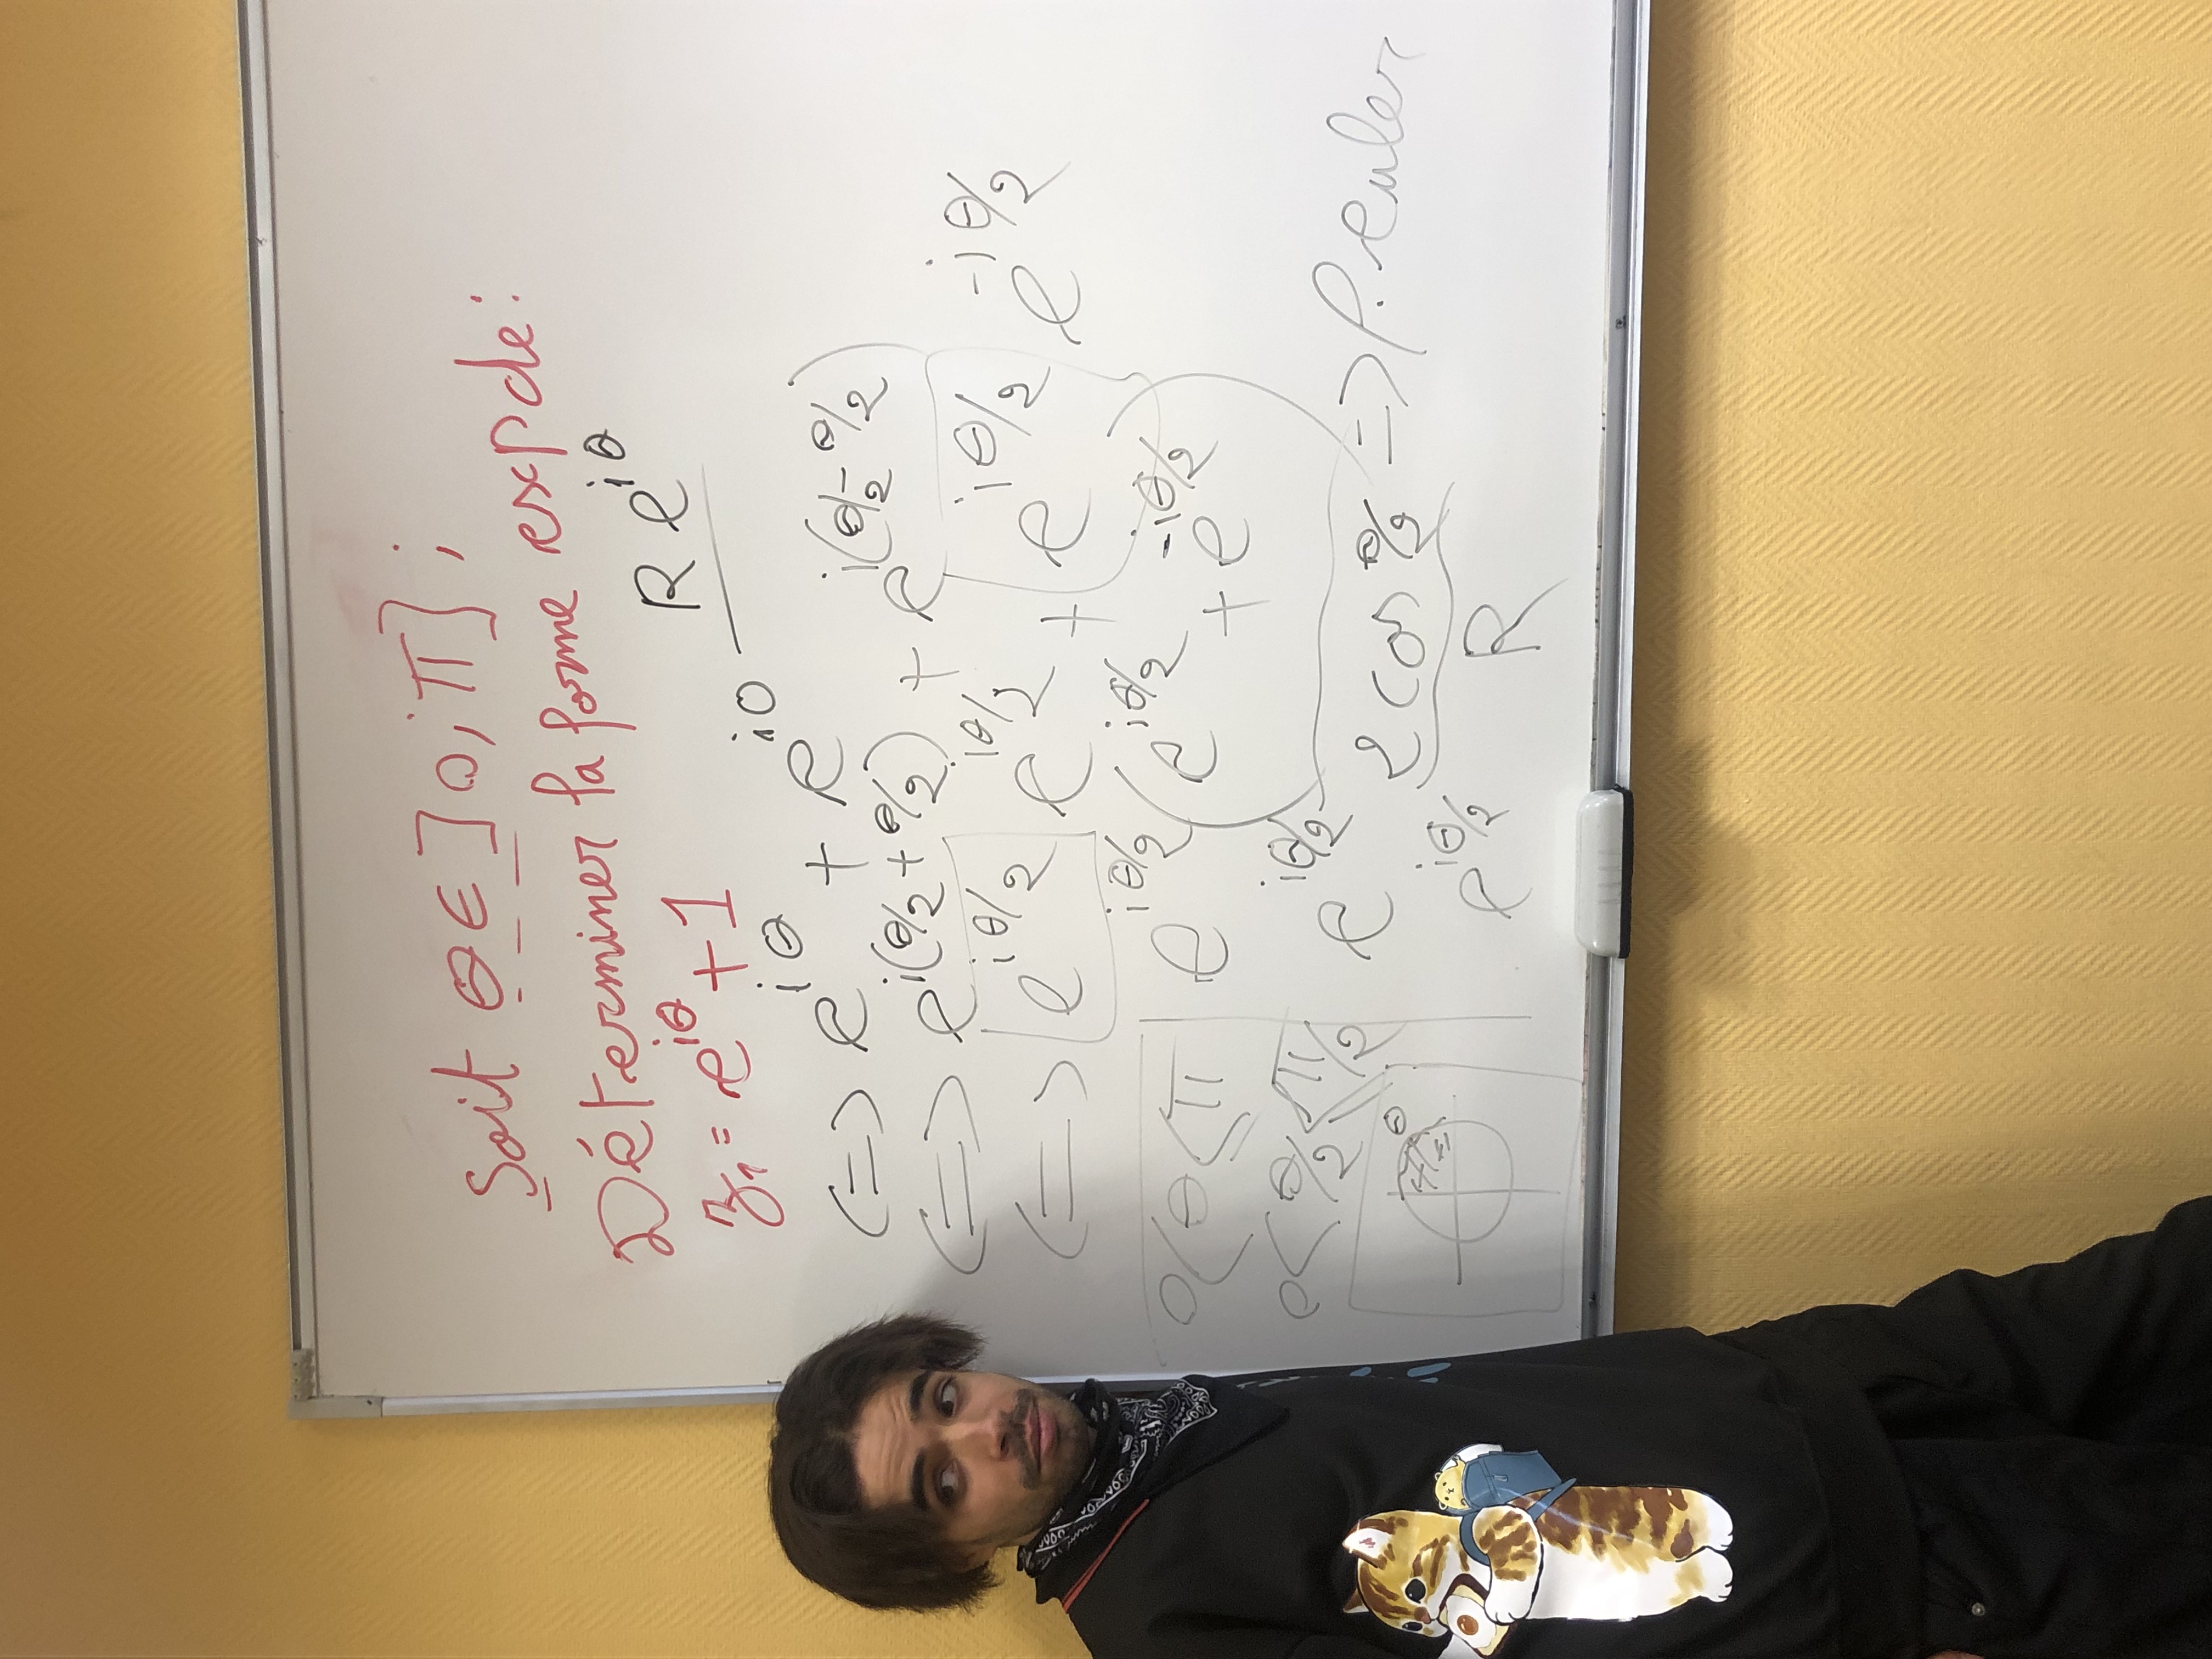 Soit θ ∈ ]0; π];
Déterminer la forme exp de :
z₁ = e^{iθ} + 1
R e^{iθ}
<=> e^{iθ} + e^{i0}
<=> e^{i(θ/2 + θ/2)} + e^{i(θ/2 - θ/2)}
<=> e^{iθ/2} e^{iθ/2} + e^{iθ/2} e^{-iθ/2}
e^{iθ/2} (e^{iθ/2} + e^{-iθ/2})
e^{iθ/2} 2 cos θ/2 => f. euler
e^{iθ/2} R
0 < θ < π
0 < θ/2 < π/2
θ